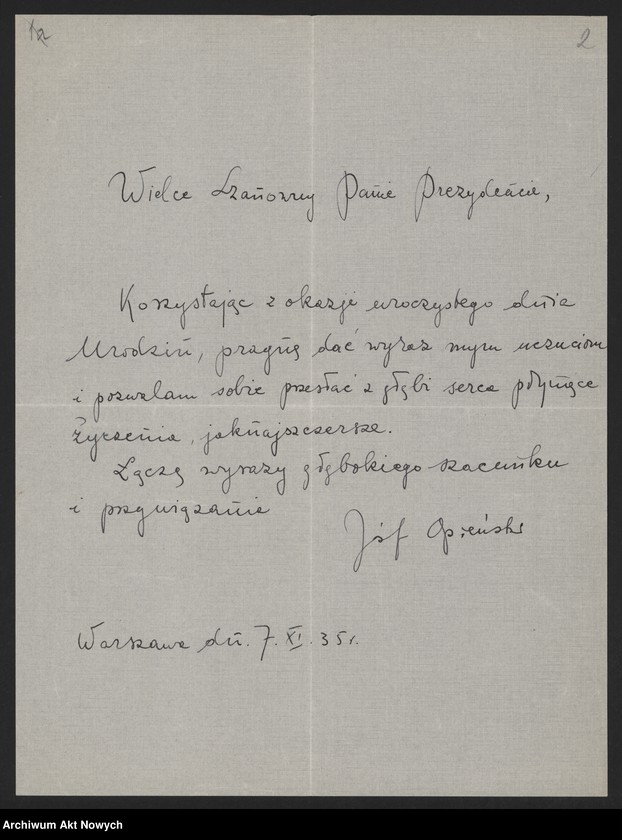 2
Wielce Szanowny Panie Prezydencie,
Korzystając z okazji uroczystego dnia
Urodzin, pragnę dać wyraz mym uczuciom
i pozwalam sobie przesłać z głębi serca płynące
życzenia, jaknajszczersze.
Łączę wyrazy głębokiego szacunku
i przywiązania
Józf Opieński
Warszawa dn. 7. XI. 35 r.
Archiwum Akt Nowych